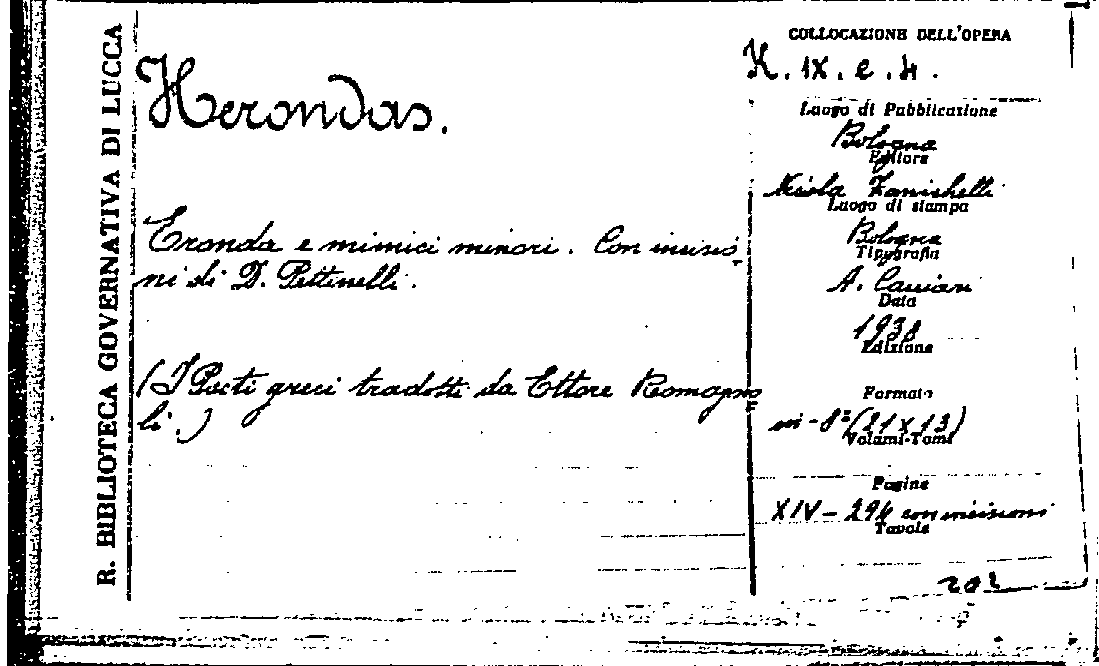 R. BIBLIOTECA GOVERNATIVA DI LUCCA
Herondas.
Eronda e mimici minori. Con incisio
ni di D. Pettinelli.
(I Poeti greci tradotti da Ettore Romagno
li.)
COLLOCAZIONE DELL'OPERA
K. IX. e. 4.
Luogo di Pubblicazione
Bologna
Editore
Nicola Zanichelli
Luogo di stampa
Bologna
Tipografia
A. Cacciari
Data
1938
Edizione
Formato
in-8º (21 x 13)
Volumi-Tomi
Pagine
XIV - 294 con incisioni
Tavole